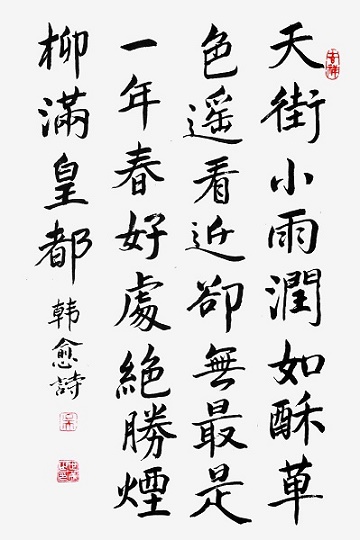 天街小雨潤如酥草
色遥看近卻無最是
一年春好處絶勝煙
柳滿皇都
韩愈詩
吉祥